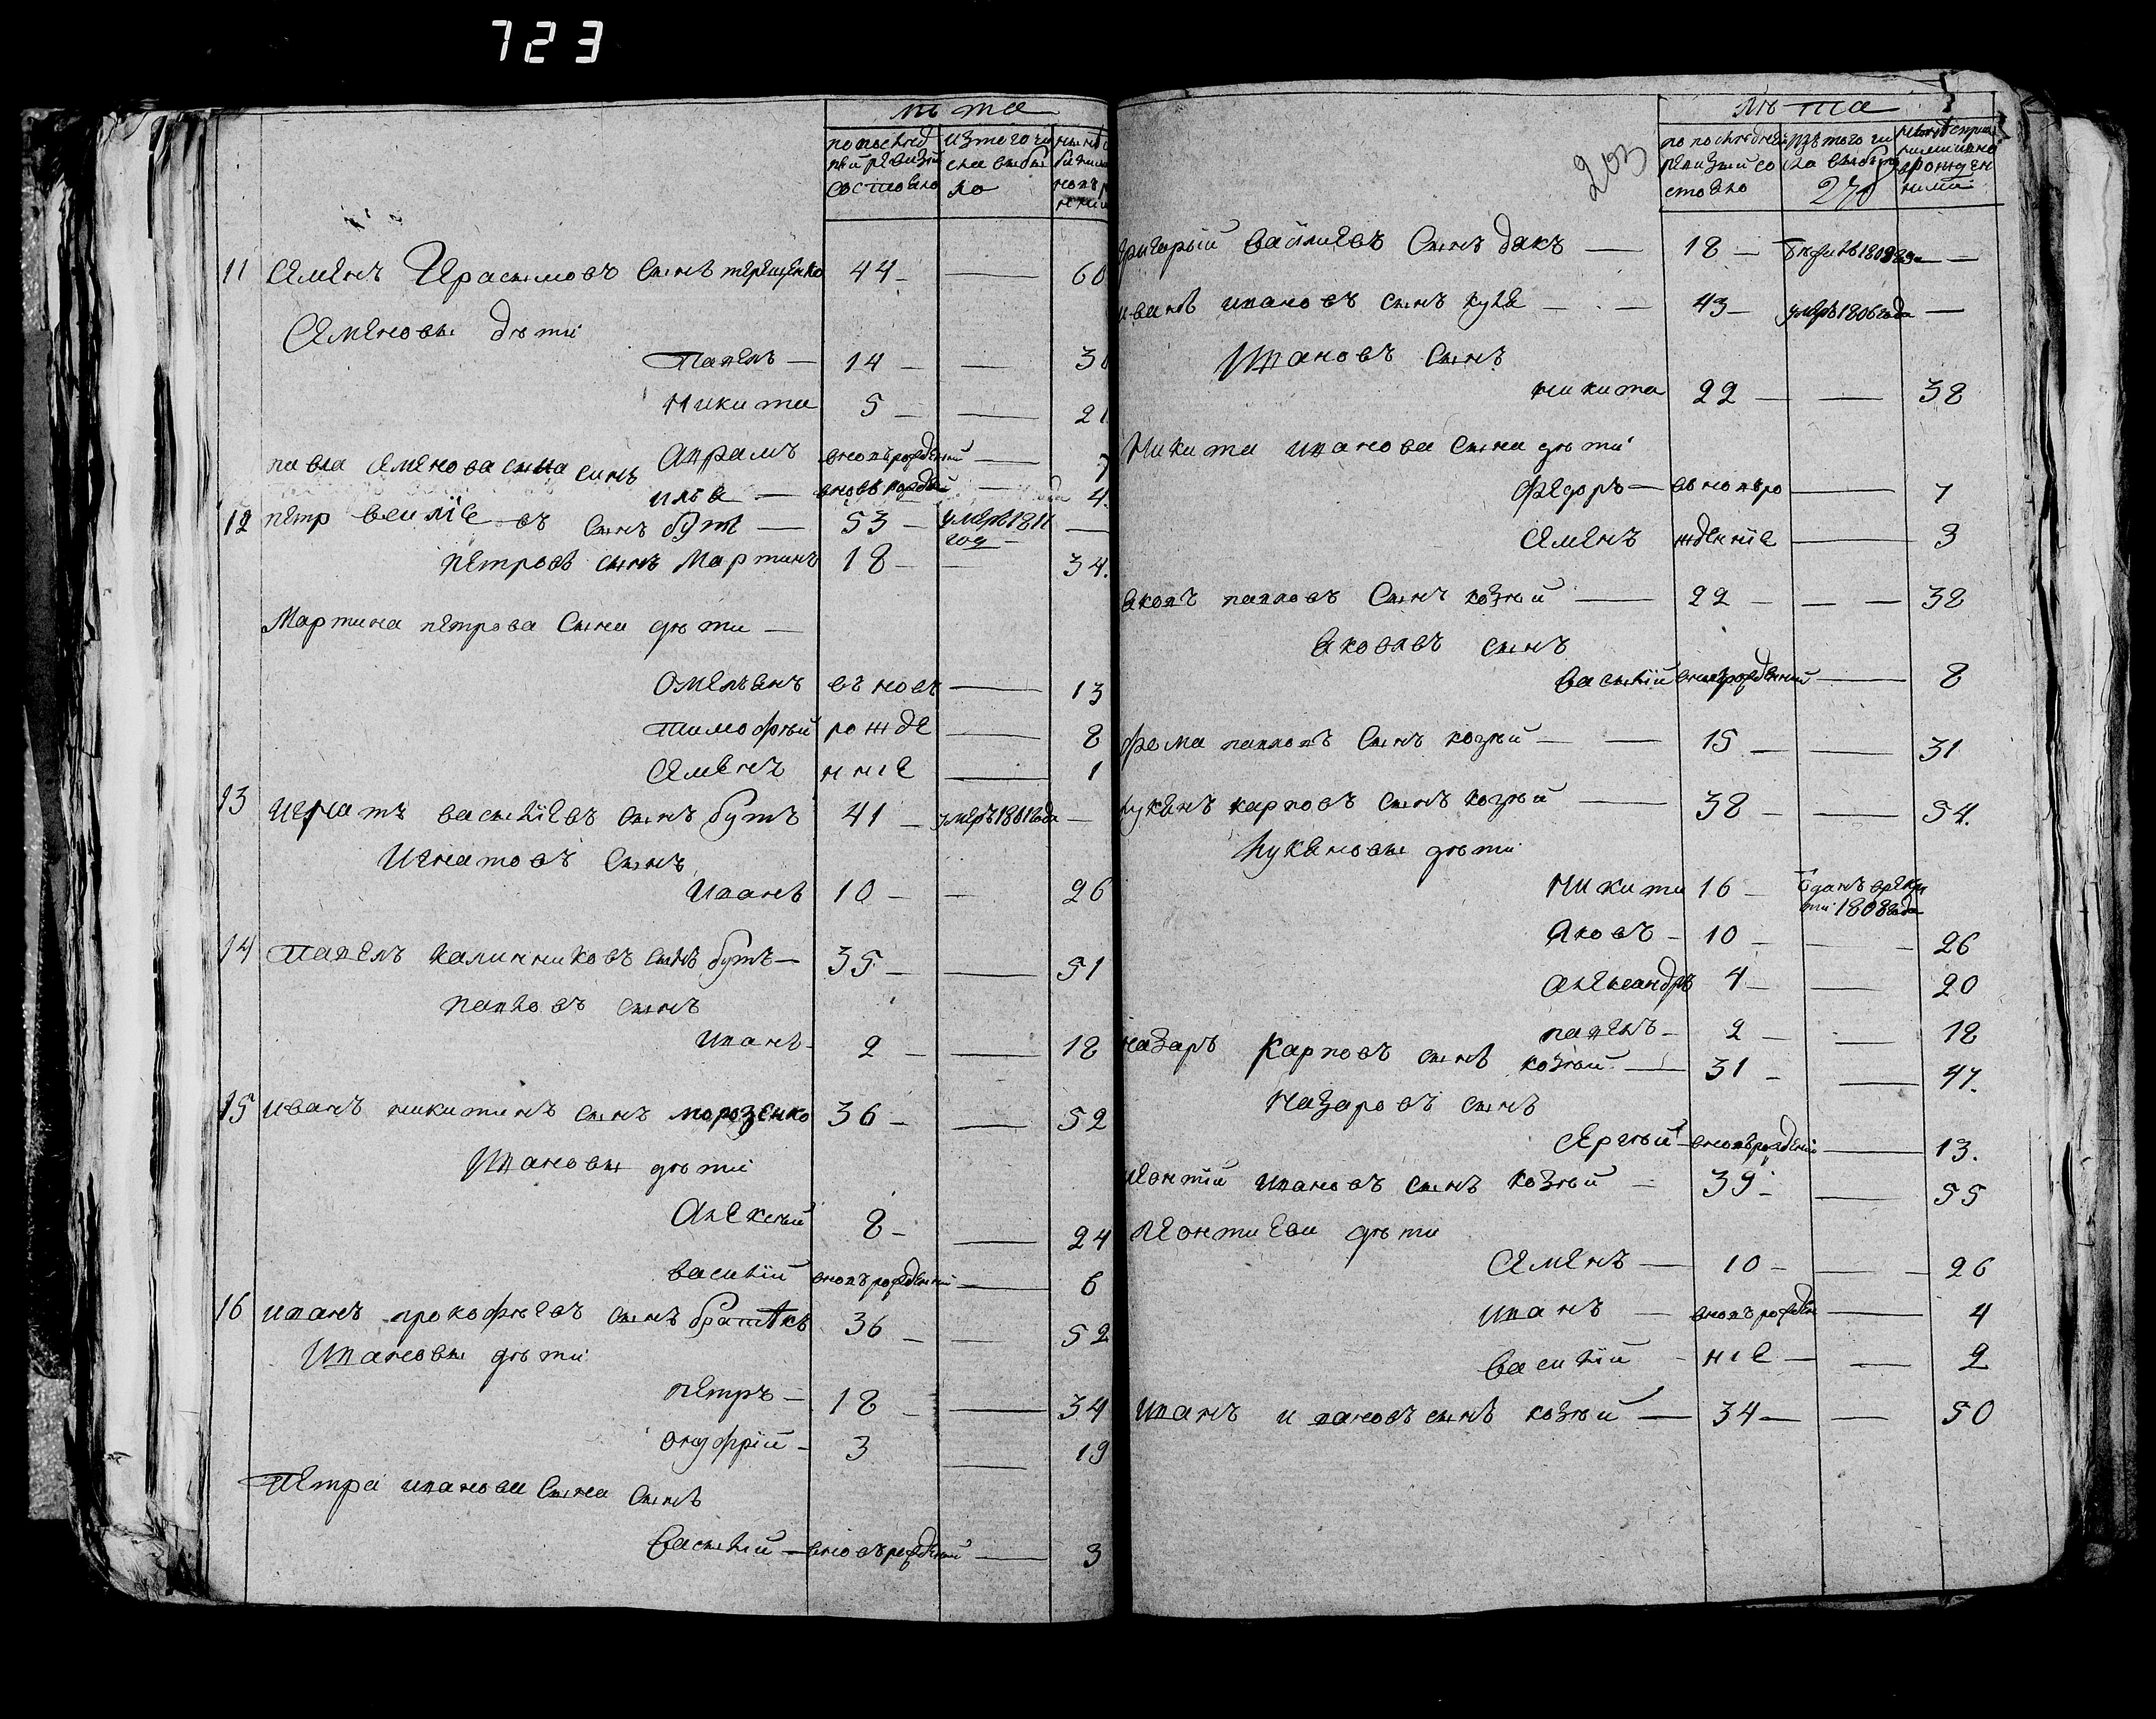 723
лѣта
по последней ревизіи состояло
из того числа выбыло
11 Семенъ Герасимовъ сынъ терещенко 44 — — 60
Семеновы дѣти
Павелъ — 14 — —
Никита 5 — — 21
Аврамъ вновьрожденный — 7
павла Семенова сына сынъ
илья — вновь рожденый — 4
12 петр василіевъ сынъ бутъ — 53 — умеръ 1811 год —
петровъ сынъ Мартинъ 18 — — 34.
Мартина петрова сына дѣти —
Омельянъ въ новь — 13
тимофѣй рожде — 8
Семенъ нніе — 1
13 игнатъ василіевъ сынъ бутъ 41 — умеръ 1801 года —
Игнатовъ сынъ
Иванъ 10 — — 26
14 Павелъ калинниковъ сынъ бутъ — 35 — — 51
павловъ сынъ
иванъ — 2 — — 18
15 иванъ никитинъ сынъ морозенко 36 — — 52
Ивановы дѣти
Алексѣй 8 — — 24
василій вновьрожденный — 6
16 иванъ прокофьевъ сынъ 36 — — 52
Ивановы дѣти
петръ — 18 — — 34
онуфрій — 3 — 19
Петра иванова сына сынъ
василій — вновьрожденый — 3
203
лѣта
по последней ревизии состояло
изъ того числа выбыло
270
Григорый василіевъ сынъ дякъ — 18 — —
иванъ ивановъ сынъ — 43 — умеръ 1806 года —
Ивановъ сынъ
никита 22 — — 38
Никита иванова сына дѣти
федоръ — въ новьро — 7
Семенъ жденніе — 3
яковъ павловъ сынъ козный — 22 — — — 38
яковлевъ сынъ
василій вновьрожденный — 8
фома павловъ сынъ козный — — 15 — — 31
лукянъ карповъ сынъ козный — 38 — — 54.
Лукяновы дѣти
Никита 16 — отданъ в рекруты 1808 года
Яковъ — 10 — — 26
александръ 4 — — 20
павелъ — 2 — — 18
назаръ Карповъ сынъ козный — 31 — — 47.
Назаровъ сынъ
Сергѣй — вновьрожденій — 13.
леонтій ивановъ сынъ козный — 39 — — 55
Леонтиеви дѣти
Семенъ — 10 — — — 26
иванъ — вновьрожден — 4
василій — ніе — — 2
иванъ ивановъ сынъ козный — 34 — — 50